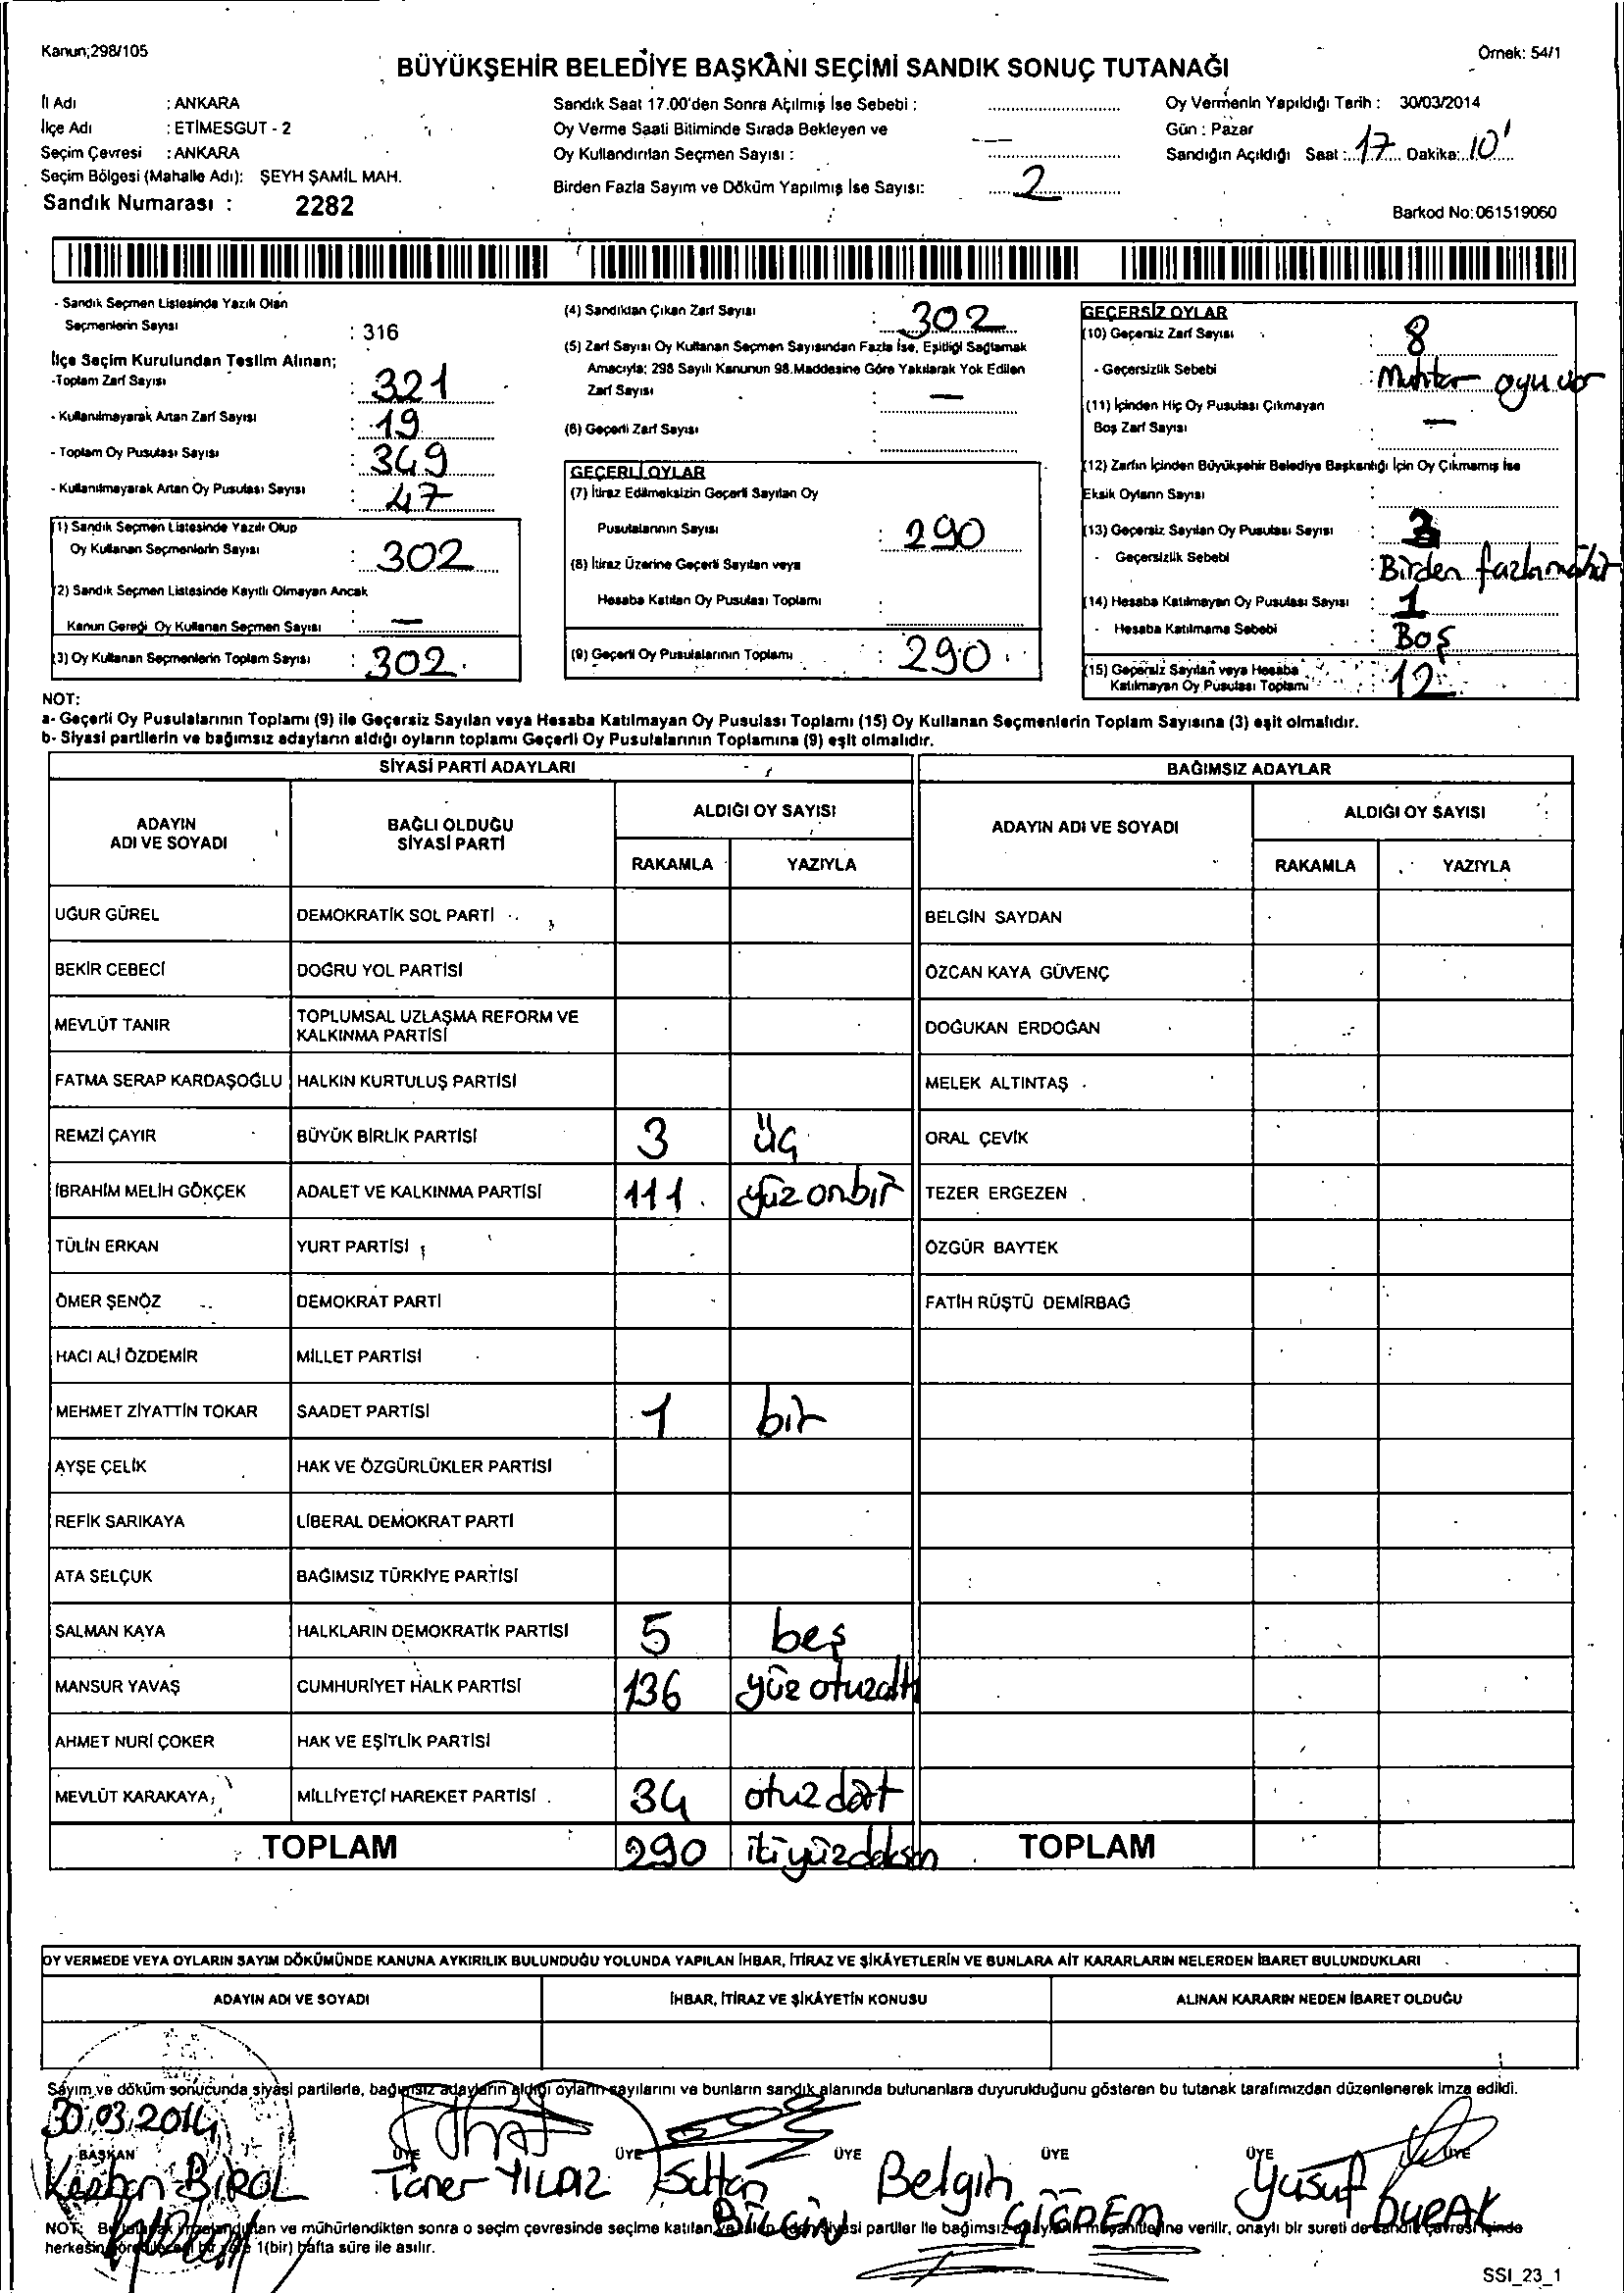 Kanun;298/105
Örnek: 54/1
BÜYÜKŞEHİR BELEDİYE BAŞKANI SEÇİMİ SANDIK SONUÇ TUTANAĞI
İl Adı : ANKARA
İlçe Adı : ETİMESGUT - 2
Seçim Çevresi : ANKARA
Seçim Bölgesi (Mahalle Adı): ŞEYH ŞAMİL MAH.
Sandık Numarası : 2282
Sandık Saat 17.00'den Sonra Açılmış İse Sebebi :
Oy Verme Saati Bitiminde Sırada Bekleyen ve
Oy Kullandırılan Seçmen Sayısı :
Birden Fazla Sayım ve Döküm Yapılmış İse Sayısı: 2
Oy Vermenin Yapıldığı Tarih : 30/03/2014
Gün : Pazar
Sandığın Açıldığı Saat : 17 Dakika: 10'
Barkod No: 061519060
- Sandık Seçmen Listesinde Yazılı Olan
Seçmenlerin Sayısı : 316
İlçe Seçim Kurulundan Teslim Alınan;
-Toplam Zarf Sayısı : 321
- Kullanılmayarak Artan Zarf Sayısı : 19
- Toplam Oy Pusulası Sayısı : 349
- Kullanılmayarak Artan Oy Pusulası Sayısı : 47
(1) Sandık Seçmen Listesinde Yazılı Olup
Oy Kullanan Seçmenlerin Sayısı : 302
(2) Sandık Seçmen Listesinde Kayıtlı Olmayan Ancak
Kanun Gereği Oy Kullanan Seçmen Sayısı : —
(3) Oy Kullanan Seçmenlerin Toplam Sayısı : 302
(4) Sandıktan Çıkan Zarf Sayısı : 302
(5) Zarf Sayısı Oy Kullanan Seçmen Sayısından Fazla İse, Eşitliği Sağlamak
Amacıyla; 298 Sayılı Kanunun 98.Maddesine Göre Yakılarak Yok Edilen
Zarf Sayısı : —
(6) Geçerli Zarf Sayısı :
GEÇERLİ OYLAR
(7) İtiraz Edilmeksizin Geçerli Sayılan Oy
Pusulalarının Sayısı : 290
(8) İtiraz Üzerine Geçerli Sayılan veya
Hesaba Katılan Oy Pusulası Toplamı :
(9) Geçerli Oy Pusulalarının Toplamı : 290
GEÇERSİZ OYLAR
(10) Geçersiz Zarf Sayısı : 8
- Geçersizlik Sebebi : Muhtar oyu var
(11) İçinden Hiç Oy Pusulası Çıkmayan
Boş Zarf Sayısı : —
(12) Zarfın İçinden Büyükşehir Belediye Başkanlığı İçin Oy Çıkmamış İse
Eksik Oyların Sayısı :
(13) Geçersiz Sayılan Oy Pusulası Sayısı : 3
- Geçersizlik Sebebi : Birden fazla mühür
(14) Hesaba Katılmayan Oy Pusulası Sayısı : 1
- Hesaba Katılmama Sebebi : Boş
(15) Geçersiz Sayılan veya Hesaba
Katılmayan Oy Pusulası Toplamı : 12
NOT:
a- Geçerli Oy Pusulalarının Toplamı (9) ile Geçersiz Sayılan veya Hesaba Katılmayan Oy Pusulası Toplamı (15) Oy Kullanan Seçmenlerin Toplam Sayısına (3) eşit olmalıdır.
b- Siyasi partilerin ve bağımsız adayların aldığı oyların toplamı Geçerli Oy Pusulalarının Toplamına (9) eşit olmalıdır.
SİYASİ PARTİ ADAYLARI
BAĞIMSIZ ADAYLAR
ADAYIN ADI VE SOYADI
BAĞLI OLDUĞU SİYASİ PARTİ
ALDIĞI OY SAYISI
RAKAMLA YAZIYLA
ADAYIN ADI VE SOYADI
ALDIĞI OY SAYISI
RAKAMLA YAZIYLA
UĞUR GÜREL DEMOKRATİK SOL PARTİ BELGİN SAYDAN
BEKİR CEBECİ DOĞRU YOL PARTİSİ ÖZCAN KAYA GÜVENÇ
MEVLÜT TANIR TOPLUMSAL UZLAŞMA REFORM VE KALKINMA PARTİSİ DOĞUKAN ERDOĞAN
FATMA SERAP KARDAŞOĞLU HALKIN KURTULUŞ PARTİSİ MELEK ALTINTAŞ
REMZİ ÇAYIR BÜYÜK BİRLİK PARTİSİ 3 üç ORAL ÇEVİK
İBRAHİM MELİH GÖKÇEK ADALET VE KALKINMA PARTİSİ 111 yüzonbir TEZER ERGEZEN
TÜLİN ERKAN YURT PARTİSİ ÖZGÜR BAYTEK
ÖMER ŞENÖZ DEMOKRAT PARTİ FATİH RÜŞTÜ DEMİRBAĞ
HACI ALİ ÖZDEMİR MİLLET PARTİSİ
MEHMET ZİYATTİN TOKAR SAADET PARTİSİ 1 bir
AYŞE ÇELİK HAK VE ÖZGÜRLÜKLER PARTİSİ
REFİK SARIKAYA LİBERAL DEMOKRAT PARTİ
ATA SELÇUK BAĞIMSIZ TÜRKİYE PARTİSİ
SALMAN KAYA HALKLARIN DEMOKRATİK PARTİSİ 5 beş
MANSUR YAVAŞ CUMHURİYET HALK PARTİSİ 136 yüz otuzaltı
AHMET NURİ ÇOKER HAK VE EŞİTLİK PARTİSİ
MEVLÜT KARAKAYA MİLLİYETÇİ HAREKET PARTİSİ 34 otuz dört
TOPLAM 290 ikiyüzdoksan TOPLAM
OY VERMEDE VEYA OYLARIN SAYIM DÖKÜMÜNDE KANUNA AYKIRILIK BULUNDUĞU YOLUNDA YAPILAN İHBAR, İTİRAZ VE ŞİKÂYETLERİN VE BUNLARA AİT KARARLARIN NELERDEN İBARET BULUNDUKLARI
ADAYIN ADI VE SOYADI İHBAR, İTİRAZ VE ŞİKÂYETİN KONUSU ALINAN KARARIN NEDEN İBARET OLDUĞU
Sayım ve döküm sonucunda siyasi partilerle, bağımsız adayların aldığı oyların sayılarını ve bunların sandık alanında bulunanlara duyurulduğunu gösteren bu tutanak tarafımızdan düzenlenerek imza edildi.
30.03.2014
BAŞKAN ÜYE ÜYE ÜYE ÜYE ÜYE ÜYE
Kezban BİROL Taner YILDIZ Sultan BİLGİN Belgin ÇİĞDEM Yusuf DURAK
NOT: Bu tutanak ve mühürlendikten sonra o seçim çevresinde seçime katılan siyasi partiler ile bağımsız verilir, onaylı bir sureti de sandık çevresi içinde
herkesin 1(bir) hafta süre ile asılır.
SSI_23_1